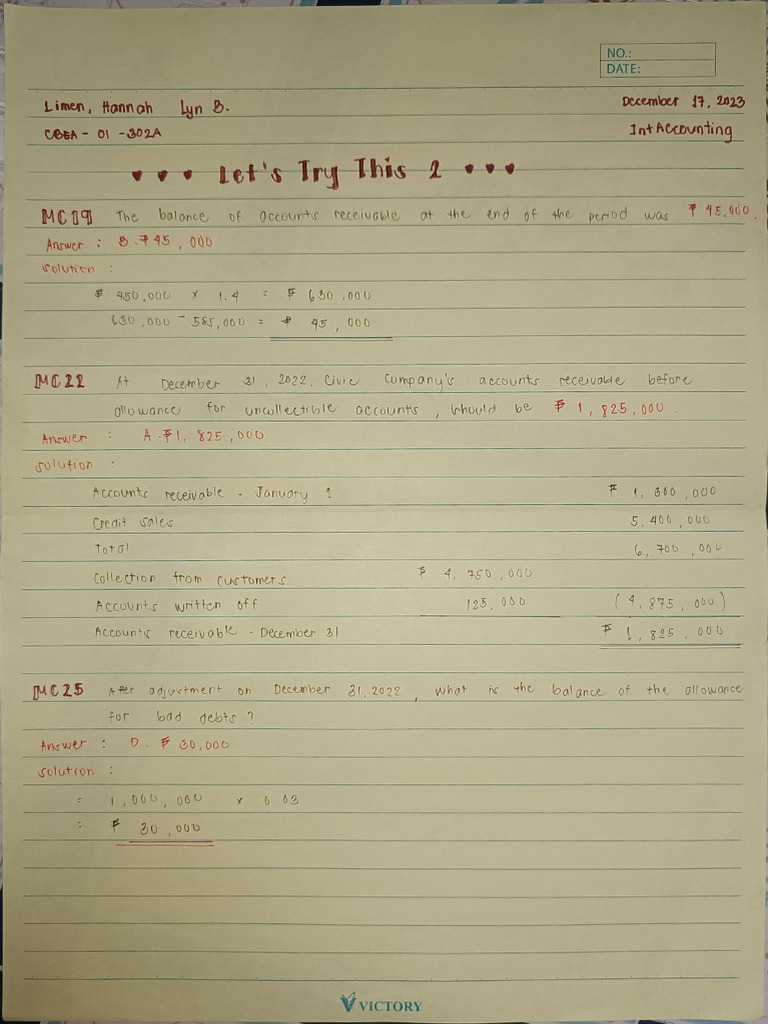 NO.:
DATE:
Limen, Hannah Lyn B. December 17, 2023
CBEA - 01 - 302A Int Accounting
♥ ♥ ♥ Let's Try This 2 ♥ ♥ ♥
MC19 The balance of accounts receivable at the end of the period was ₱ 45,000.
Answer : B. ₱45,000
solution :
₱ 450,000 x 1.4 = ₱ 630,000
630,000 - 585,000 = ₱ 45,000
MC22 At December 31, 2022, Civic Company's accounts receivable before
allowance for uncollectible accounts, should be ₱ 1,825,000.
Answer : A. ₱1,825,000
solution :
Accounts receivable - January 1 ₱ 1,300,000
Credit sales 5,400,000
Total 6,700,000
Collection from customers ₱ 4,750,000
Accounts written off 125,000 (4,875,000)
Accounts receivable - December 31 ₱ 1,825,000
MC25 After adjustment on December 31, 2022, what is the balance of the allowance
for bad debts?
Answer : D. ₱ 30,000
solution :
= 1,000,000 x 0.03
= ₱ 30,000
VICTORY